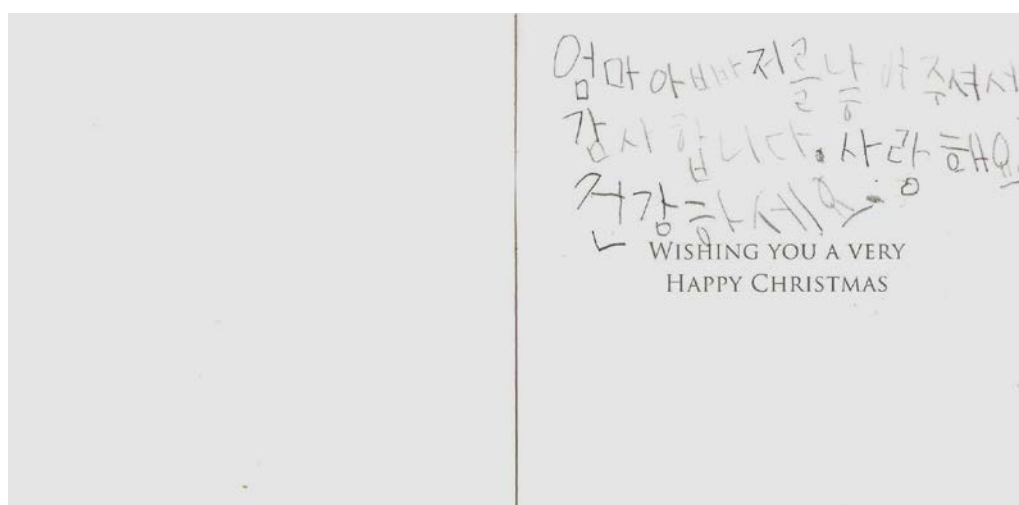 엄마 아빠 저를 낭아 주셔서
감사합니다. 사랑해요.
건강하세요.
WISHING YOU A VERY
HAPPY CHRISTMAS